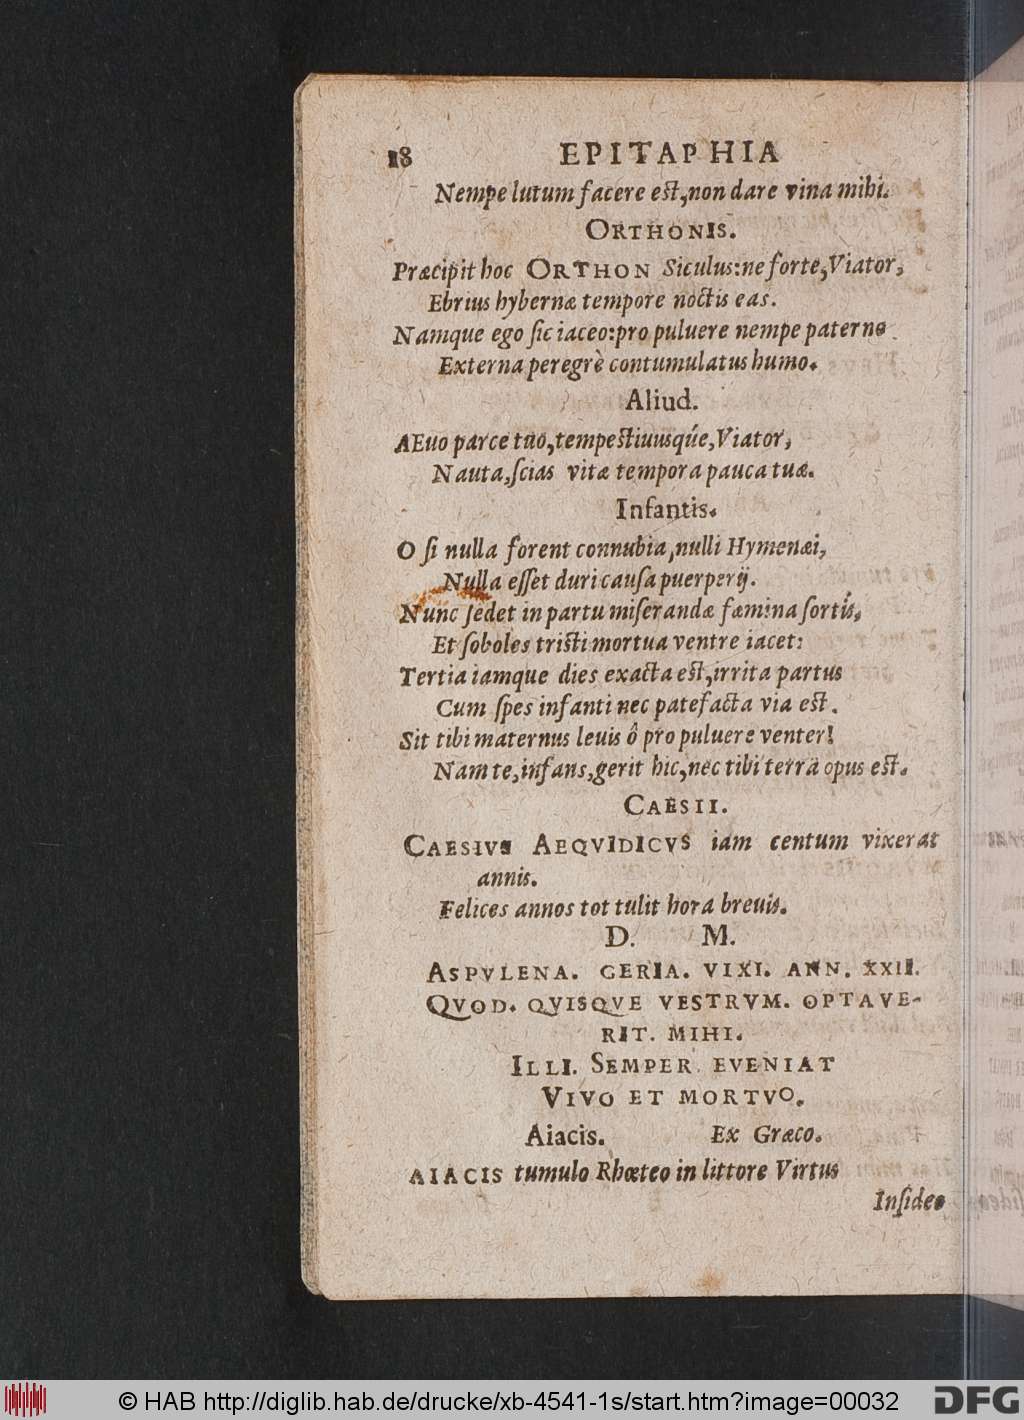 18 EPITAPHIA
Nempe lutum facere est, non dare vina mihi.
ORTHONIS.
Præcipit hoc ORTHON Siculus: ne forte, Viator,
Ebrius hybernæ tempore noctis eas.
Namque ego ſic iaceo: pro puluere nempe paterno
Externa peregrè contumulatus humo.
Aliud.
AEuo parce tuo, tempestiuusq́ue, Viator,
Nauta, ſcias vitæ tempora pauca tuæ.
Infantis.
O ſi nulla forent connubia, nulli Hymenæi,
Nulla eſſet duri cauſa puerperij.
Nunc ſedet in partu miſerandæ fæmina ſortis,
Et ſoboles tristi mortua ventre iacet:
Tertia iamque dies exacta est, irrita partus
Cum ſpes infanti nec patefacta via est.
Sit tibi maternus leuis ô pro puluere venter!
Nam te, infans, gerit hic, nec tibi terrâ opus est.
CAESII.
CAESIVS AEQVIDICVS iam centum vixerat
annis.
Felices annos tot tulit hora breuis.
D. M.
ASPVLENA. GERIA. VIXI. ANN. XXII.
QVOD. QVISQVE VESTRVM. OPTAVE-
RIT. MIHI.
ILLI. SEMPER. EVENIAT
VIVO ET MORTVO.
Aiacis. Ex Græco.
AIACIS tumulo Rhœteo in littore Virtus
Inſideo
© HAB http://diglib.hab.de/drucke/xb-4541-1s/start.htm?image=00032 DFG